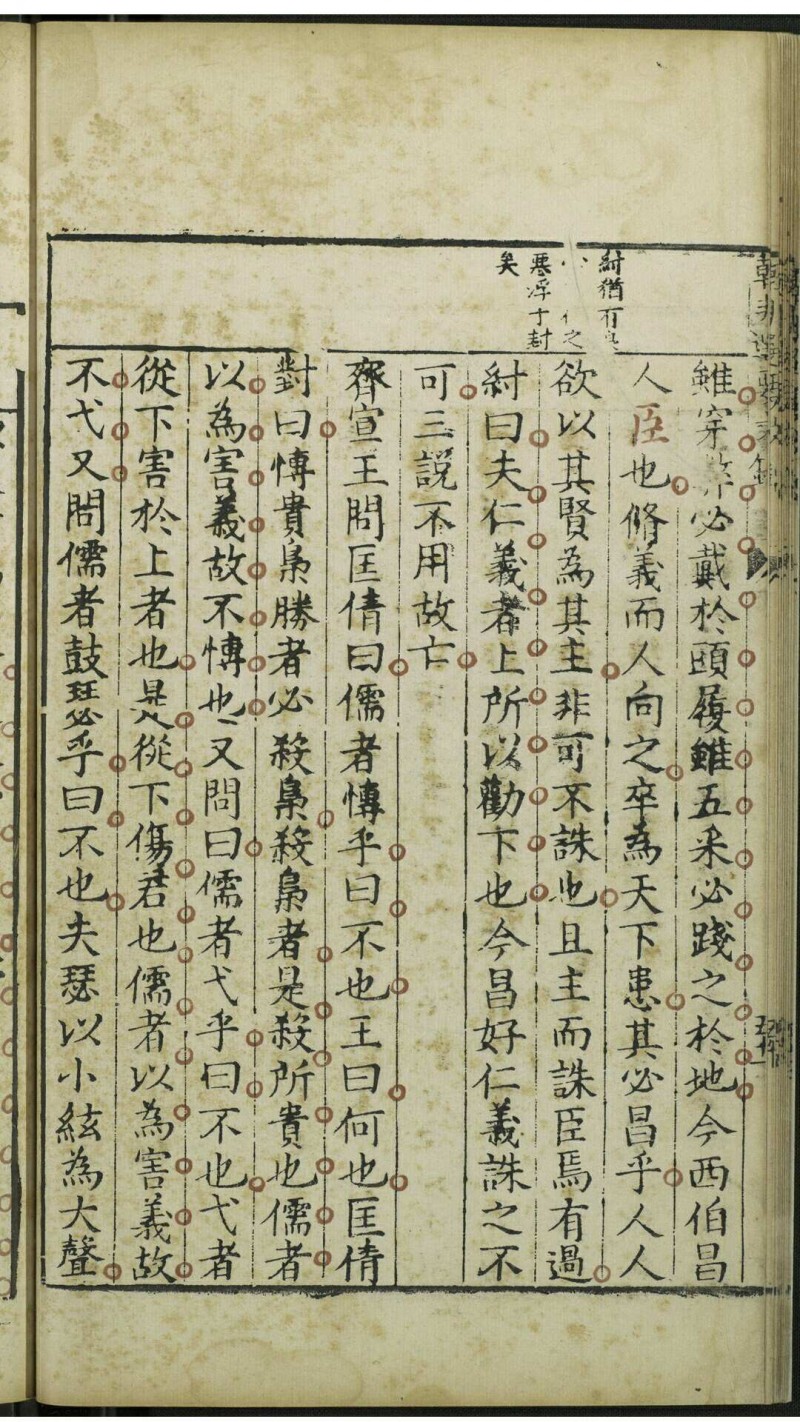 紂猶有
之
惡浮于封
矣
雖穿弊必戴於頭履雖五采必踐之於地今西伯昌
人臣也脩義而人向之卒為天下患其必昌乎人人
欲以其賢為其主非可不誅也且主而誅臣焉有過
紂曰夫仁義者上所以勸下也今昌好仁義誅之不
可三說不用故亡
齊宣王問匡倩曰儒者愽乎曰不也王曰何也匡倩
對曰愽貴梟勝者必殺梟殺梟者是殺所貴也儒者
以為害義故不愽也又問曰儒者弋乎曰不也弋者
從下害於上者也是從下傷君也儒者以為害義故
不弋又問儒者鼓瑟乎曰不也夫瑟以小絃為大聲